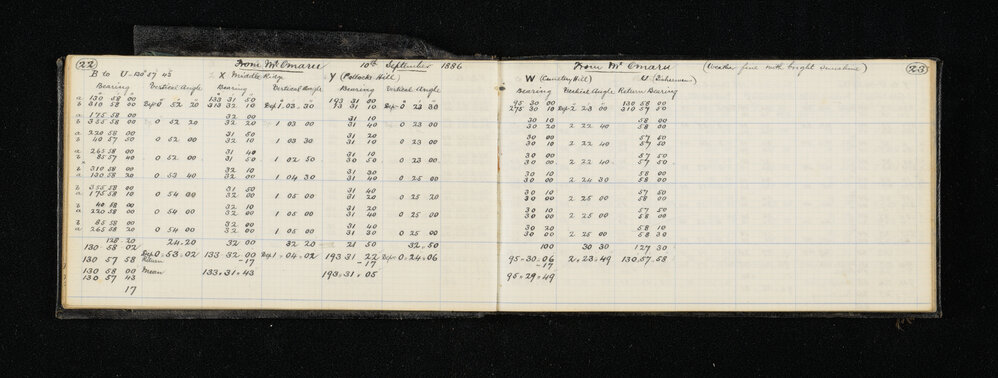 22 From Mt Omaru 10th September 1886
B to U - 130° 57' 43" X Middle Ridge Y (Pollocks Hill)
Bearing Vertical Angle Bearing Vertical Angle Bearing Vertical Angle
a 130 58 00 133 31 50 193 31 00
b 310 58 00 Dep 0 52 20 313 32 10 Dep 1.03.30 13 31 10 Dep 0 23 30
a 175 58 00 32 00 31 10
b 355 58 00 0 52 20 32 20 1 03 00 31 40 0 23 00
a 220 58 00 31 50 31 20
b 40 57 50 0 52 00 32 10 1 03 30 31 10 0 23 00
a 265 58 00 31 40 31 10
b 85 57 40 0 52 00 31 50 1 02 50 30 50 0 23 00
b 310 58 00 32 10 31 30
a 130 58 20 0 53 40 32 00 1 04 30 31 40 0 25 00
b 355 58 00 31 50 31 40
a 175 58 10 0 54 00 32 00 1 05 00 31 20 0 25 20
b 40 58 00 32 10 31 20
a 220 58 00 0 54 00 32 00 1 05 00 31 40 0 25 00
b 85 58 00 32 00 31 40
a 265 58 20 0 54 00 32 00 1 05 00 31 30 0 25 00
128 20 24.20 32 00 32 20 21 50 32.50
130 58 02 Dep 0.53.02 133 32 00 Dep 1.04.02 193 31 22 Dep 0.24.06
130 57 58 Return -17 -17
130 58 00 Mean 133.31.43 193.31.05
130 57 43
17
From Mt Omaru (Weather fine with bright sunshine) 23
W (Cemetery Hill) U (Fishermen)
Bearing Vertical Angle Return Bearing
95 30 00 130 58 00
275 30 10 Dep 2 23 00 310 57 50
30 10 58 00
30 20 2 22 40 58 00
30 00 57 50
30 10 2 22 40 57 50
30 00 57 50
30 00 2 22 40 57 50
30 10 58 00
30 00 2 24 30 58 00
30 10 57 50
30 00 2 25 00 58 00
30 00 57 50
30 00 2 25 00 58 00
30 20 58 10
30 00 2 25 00 58 30
100 30 30 127 30
95-30-06 2.23.49 130.57.58
-17
95.29.49